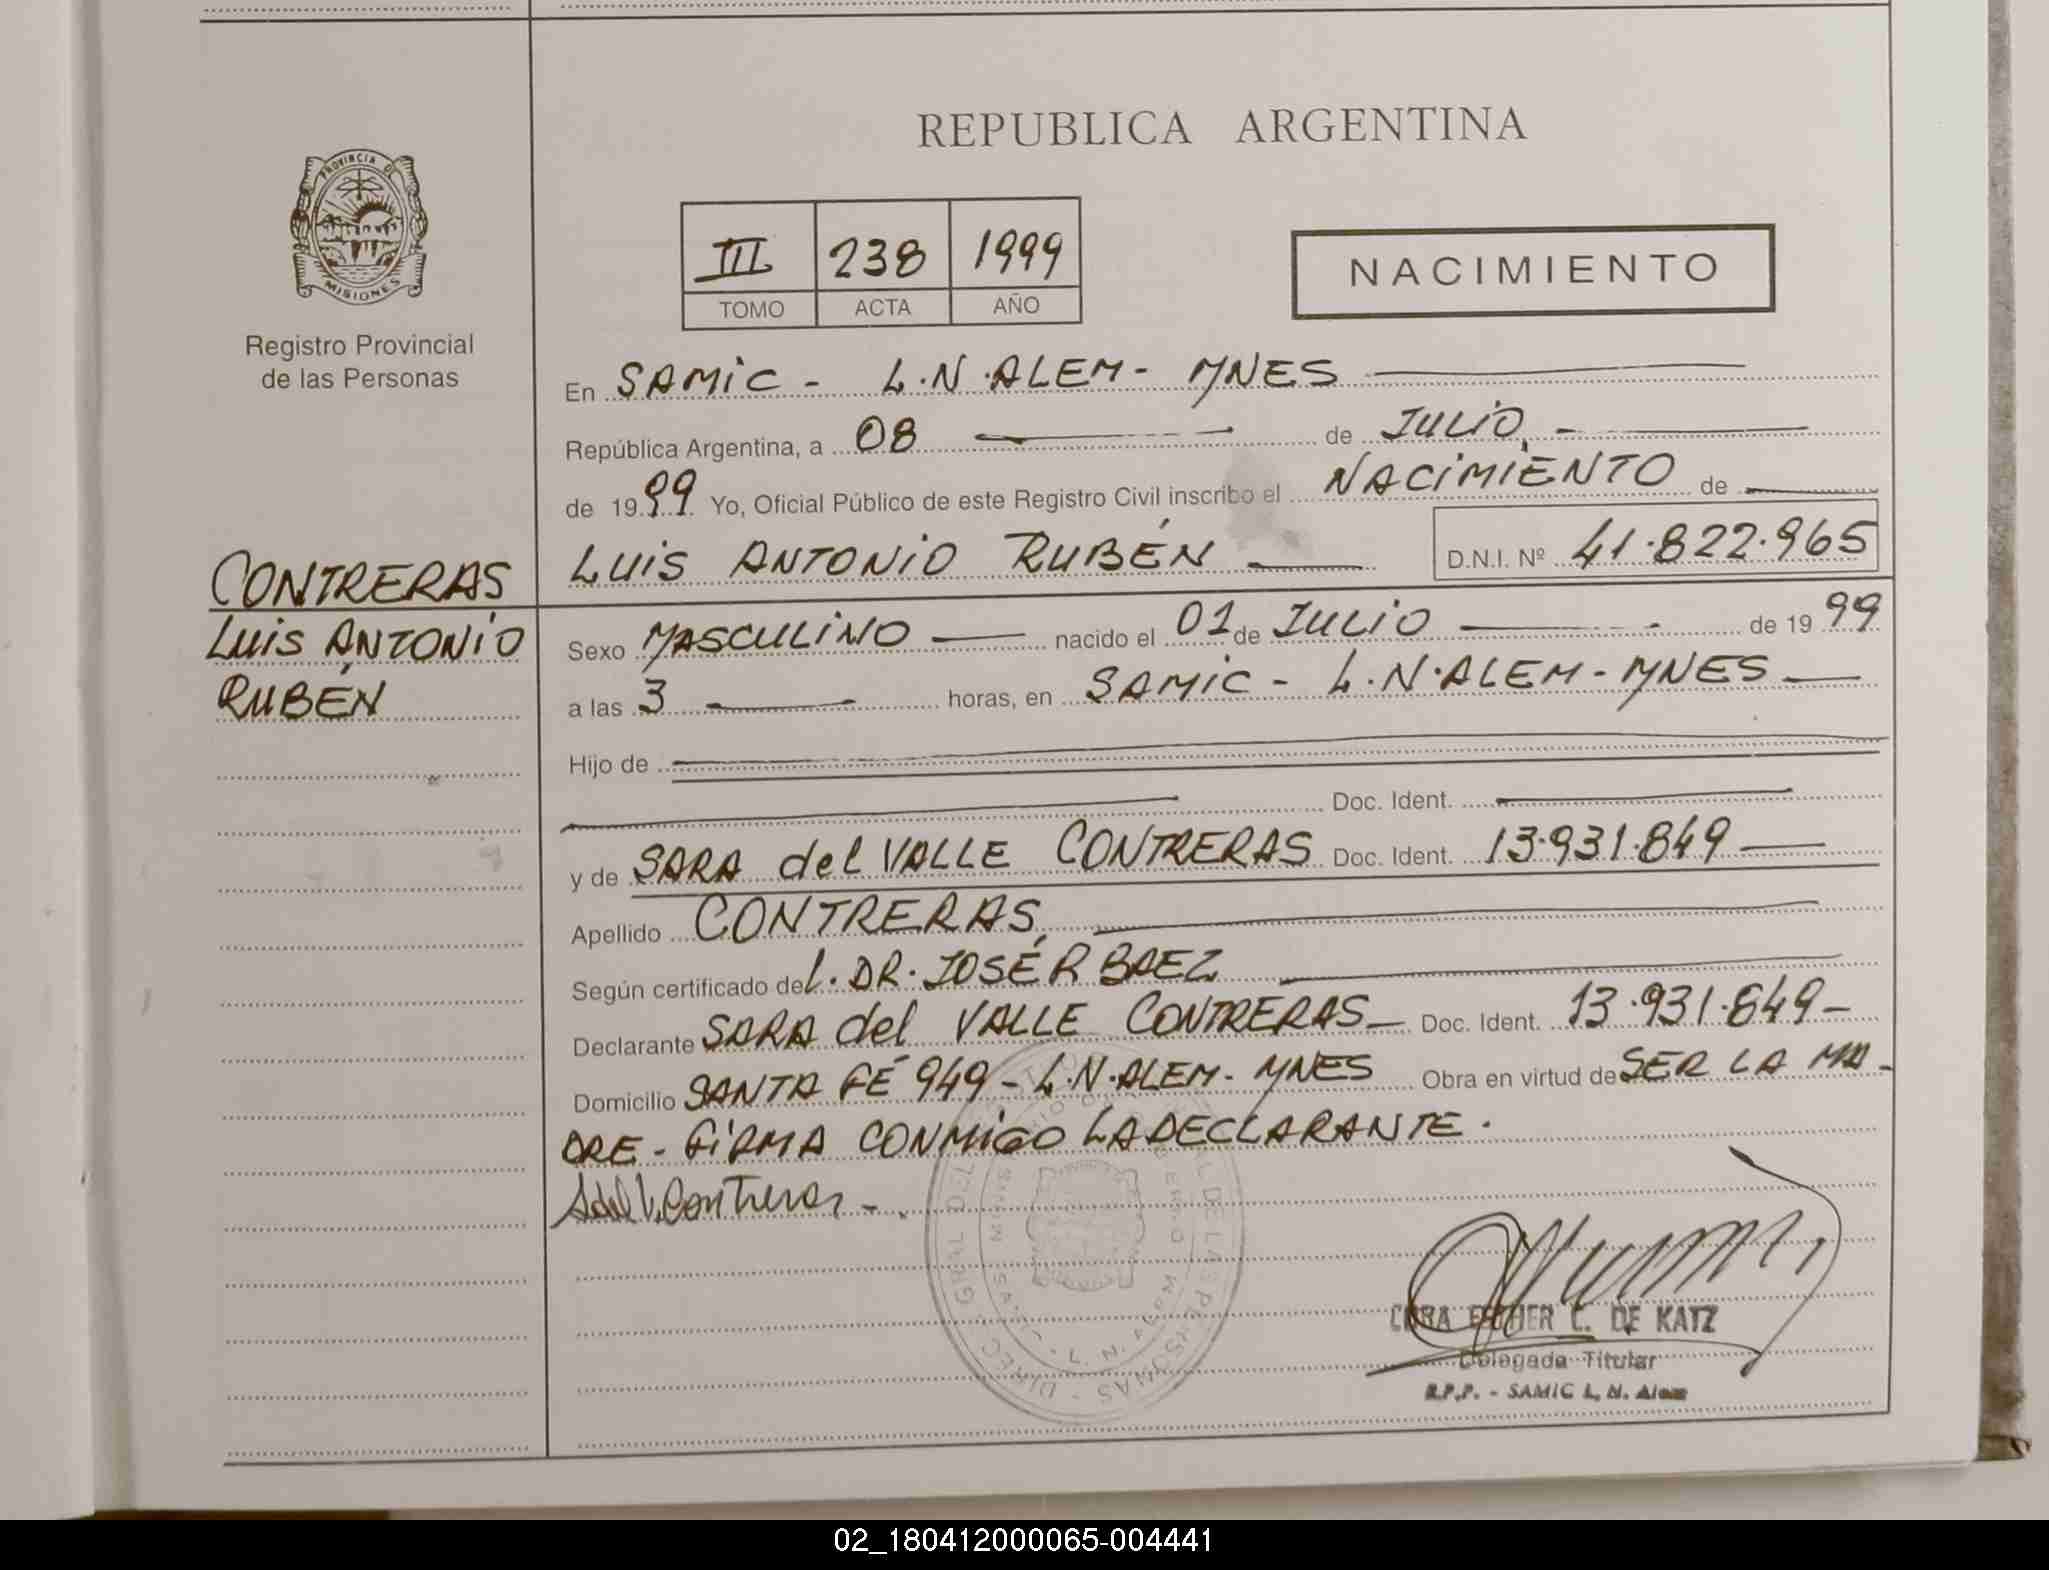 REPUBLICA ARGENTINA
PROVINCIA DE
MISIONES
Registro Provincial
de las Personas
III 238 1999
TOMO ACTA AÑO
NACIMIENTO
En SAMIC - L.N.ALEM - MNES
República Argentina, a 08 de JULIO
de 1999 Yo, Oficial Público de este Registro Civil inscribo el NACIMIENTO de
LUIS ANTONIO RUBÉN D.N.I. Nº 41.822.965
CONTRERAS
LUIS ANTONIO
RUBÉN
Sexo MASCULINO nacido el 01 de JULIO de 1999
a las 3 horas, en SAMIC - L.N.ALEM - MNES
Hijo de
Doc. Ident.
y de SARA del VALLE CONTRERAS Doc. Ident. 13.931.849
Apellido CONTRERAS
Según certificado del. DR. JOSÉ R BAEZ
Declarante SARA del VALLE CONTRERAS Doc. Ident. 13.931.849
Domicilio SANTA FÉ 949 - L.N.ALEM - MNES Obra en virtud de SER LA MA-
DRE - FIRMA CONMIGO LA DECLARANTE.
S del V. Contreras
CORA ESTHER C. DE KATZ
Delegada Titular
R.P.P. - SAMIC L. N. Alem
02_180412000065-004441